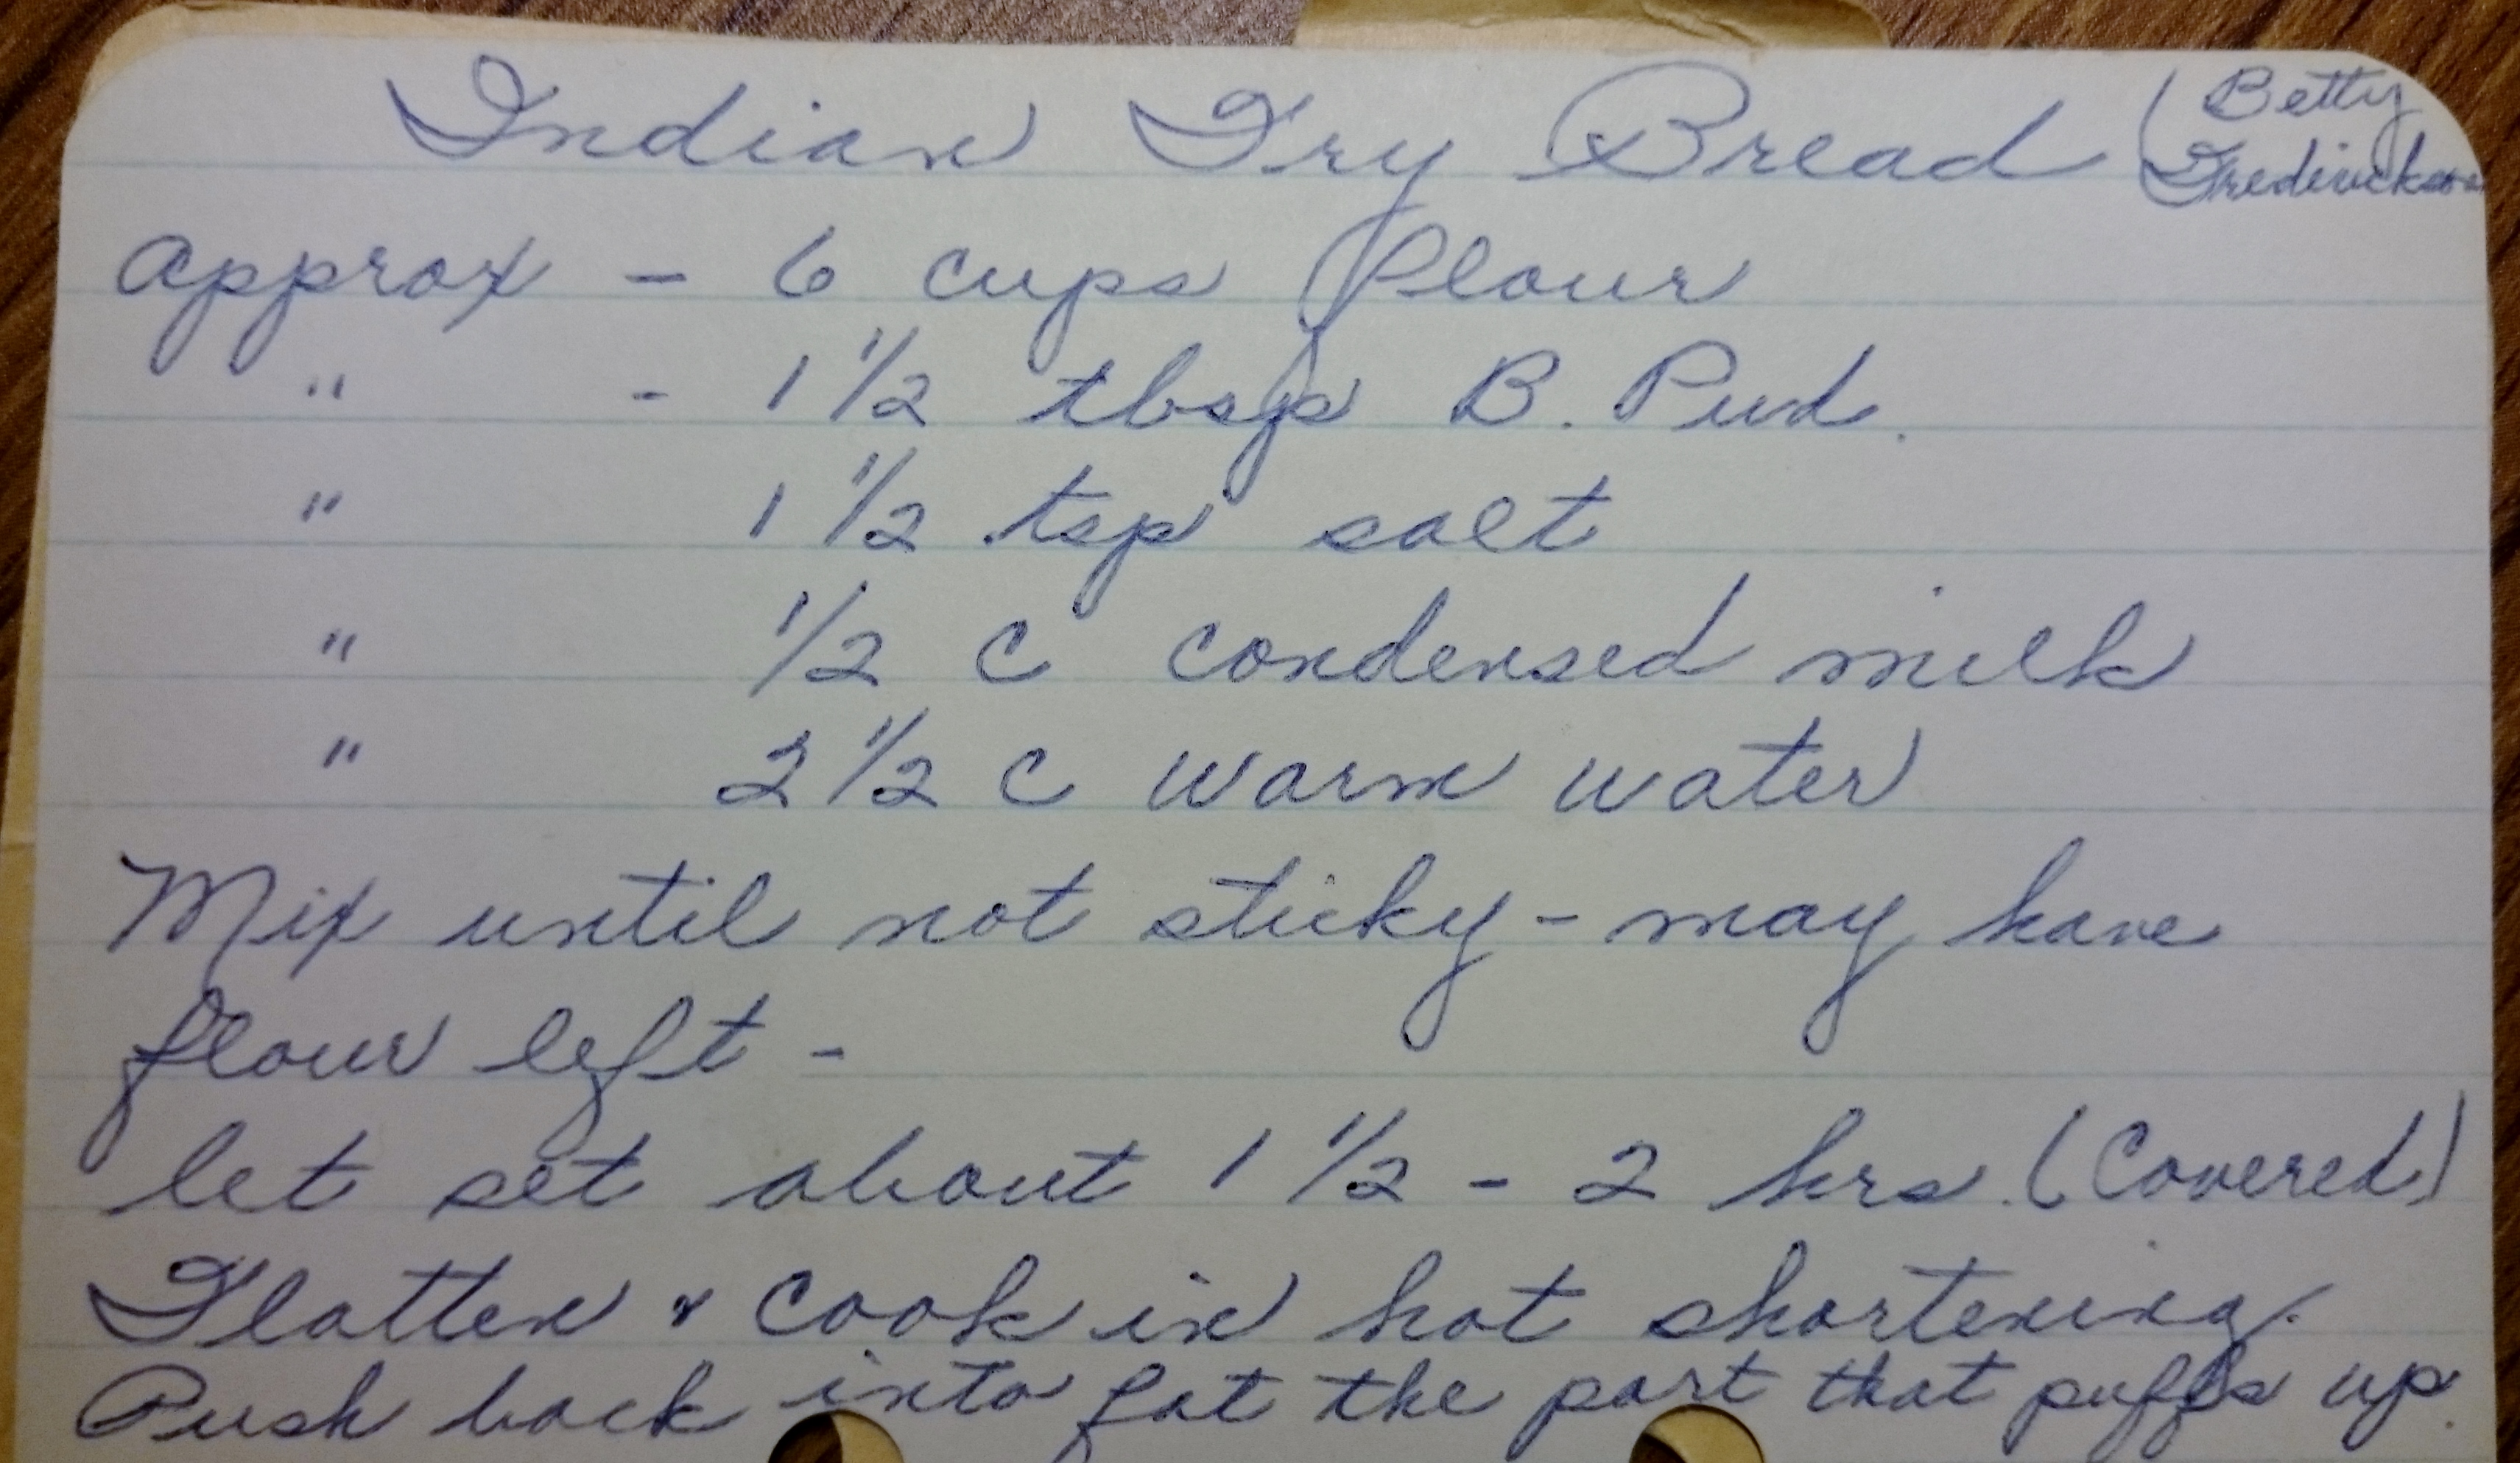 Indian Fry Bread (Betty
Fredrickson
Approx - 6 cups flour
" - 1 1/2 tbsp B. Pwd.
" 1 1/2 tsp salt
" 1/2 c condensed milk
" 2 1/2 c warm water
Mix until not sticky - may have
flour left -
let set about 1 1/2 - 2 hrs. (Covered)
Flatten & cook in hot shortening.
Push back into fat the part that puffs up.